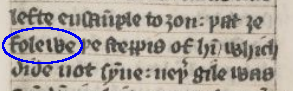 lefte ensaũple to ȝou: þat ȝe
folewe þe steppis of hĩ / which
dide not sẏne: neþ̉ gile was